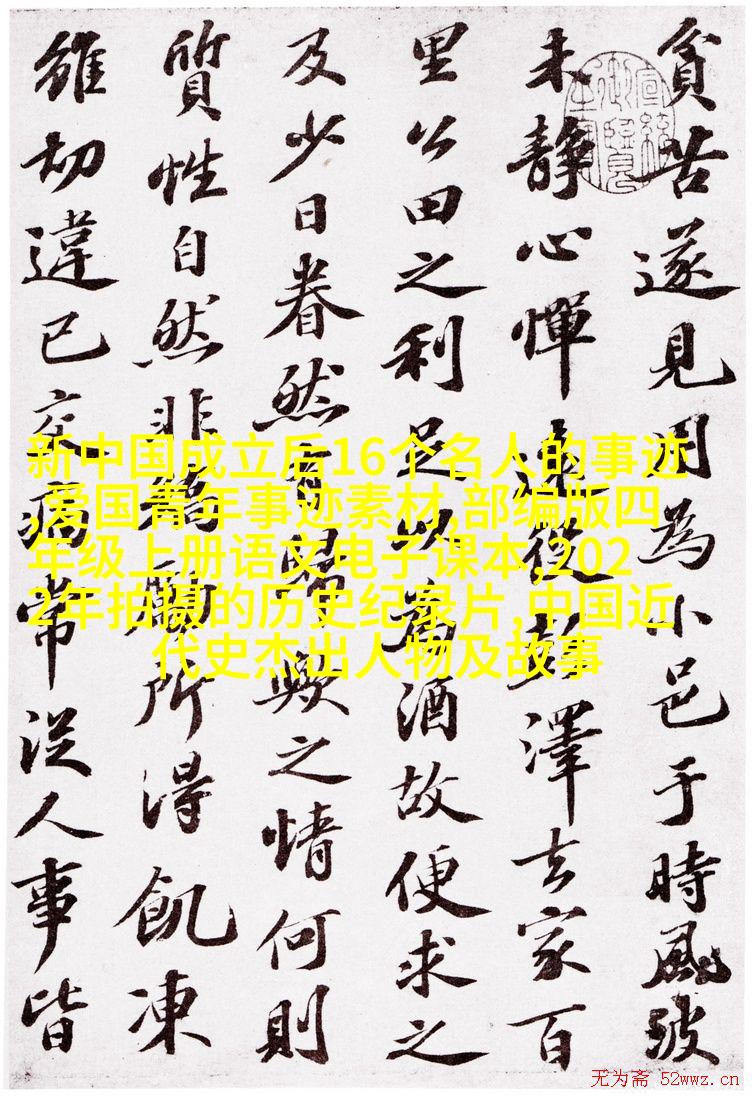 貧苦遂見用為小邑于時風波
未静心憚遠從彭澤去家百
里公田之利足以為酒故便求之
及少日眷然有歸歟之情何則
質性自然非矯勵所得飢凍
雖切違己交病常從人事皆
新中国成立后16个名人的事迹
,爱国青年事迹素材,部编版四
年级上册语文电子课本,202
2年拍摄的历史纪录片,中国近
代史杰出人物及故事
无为斋 52wwz.cn